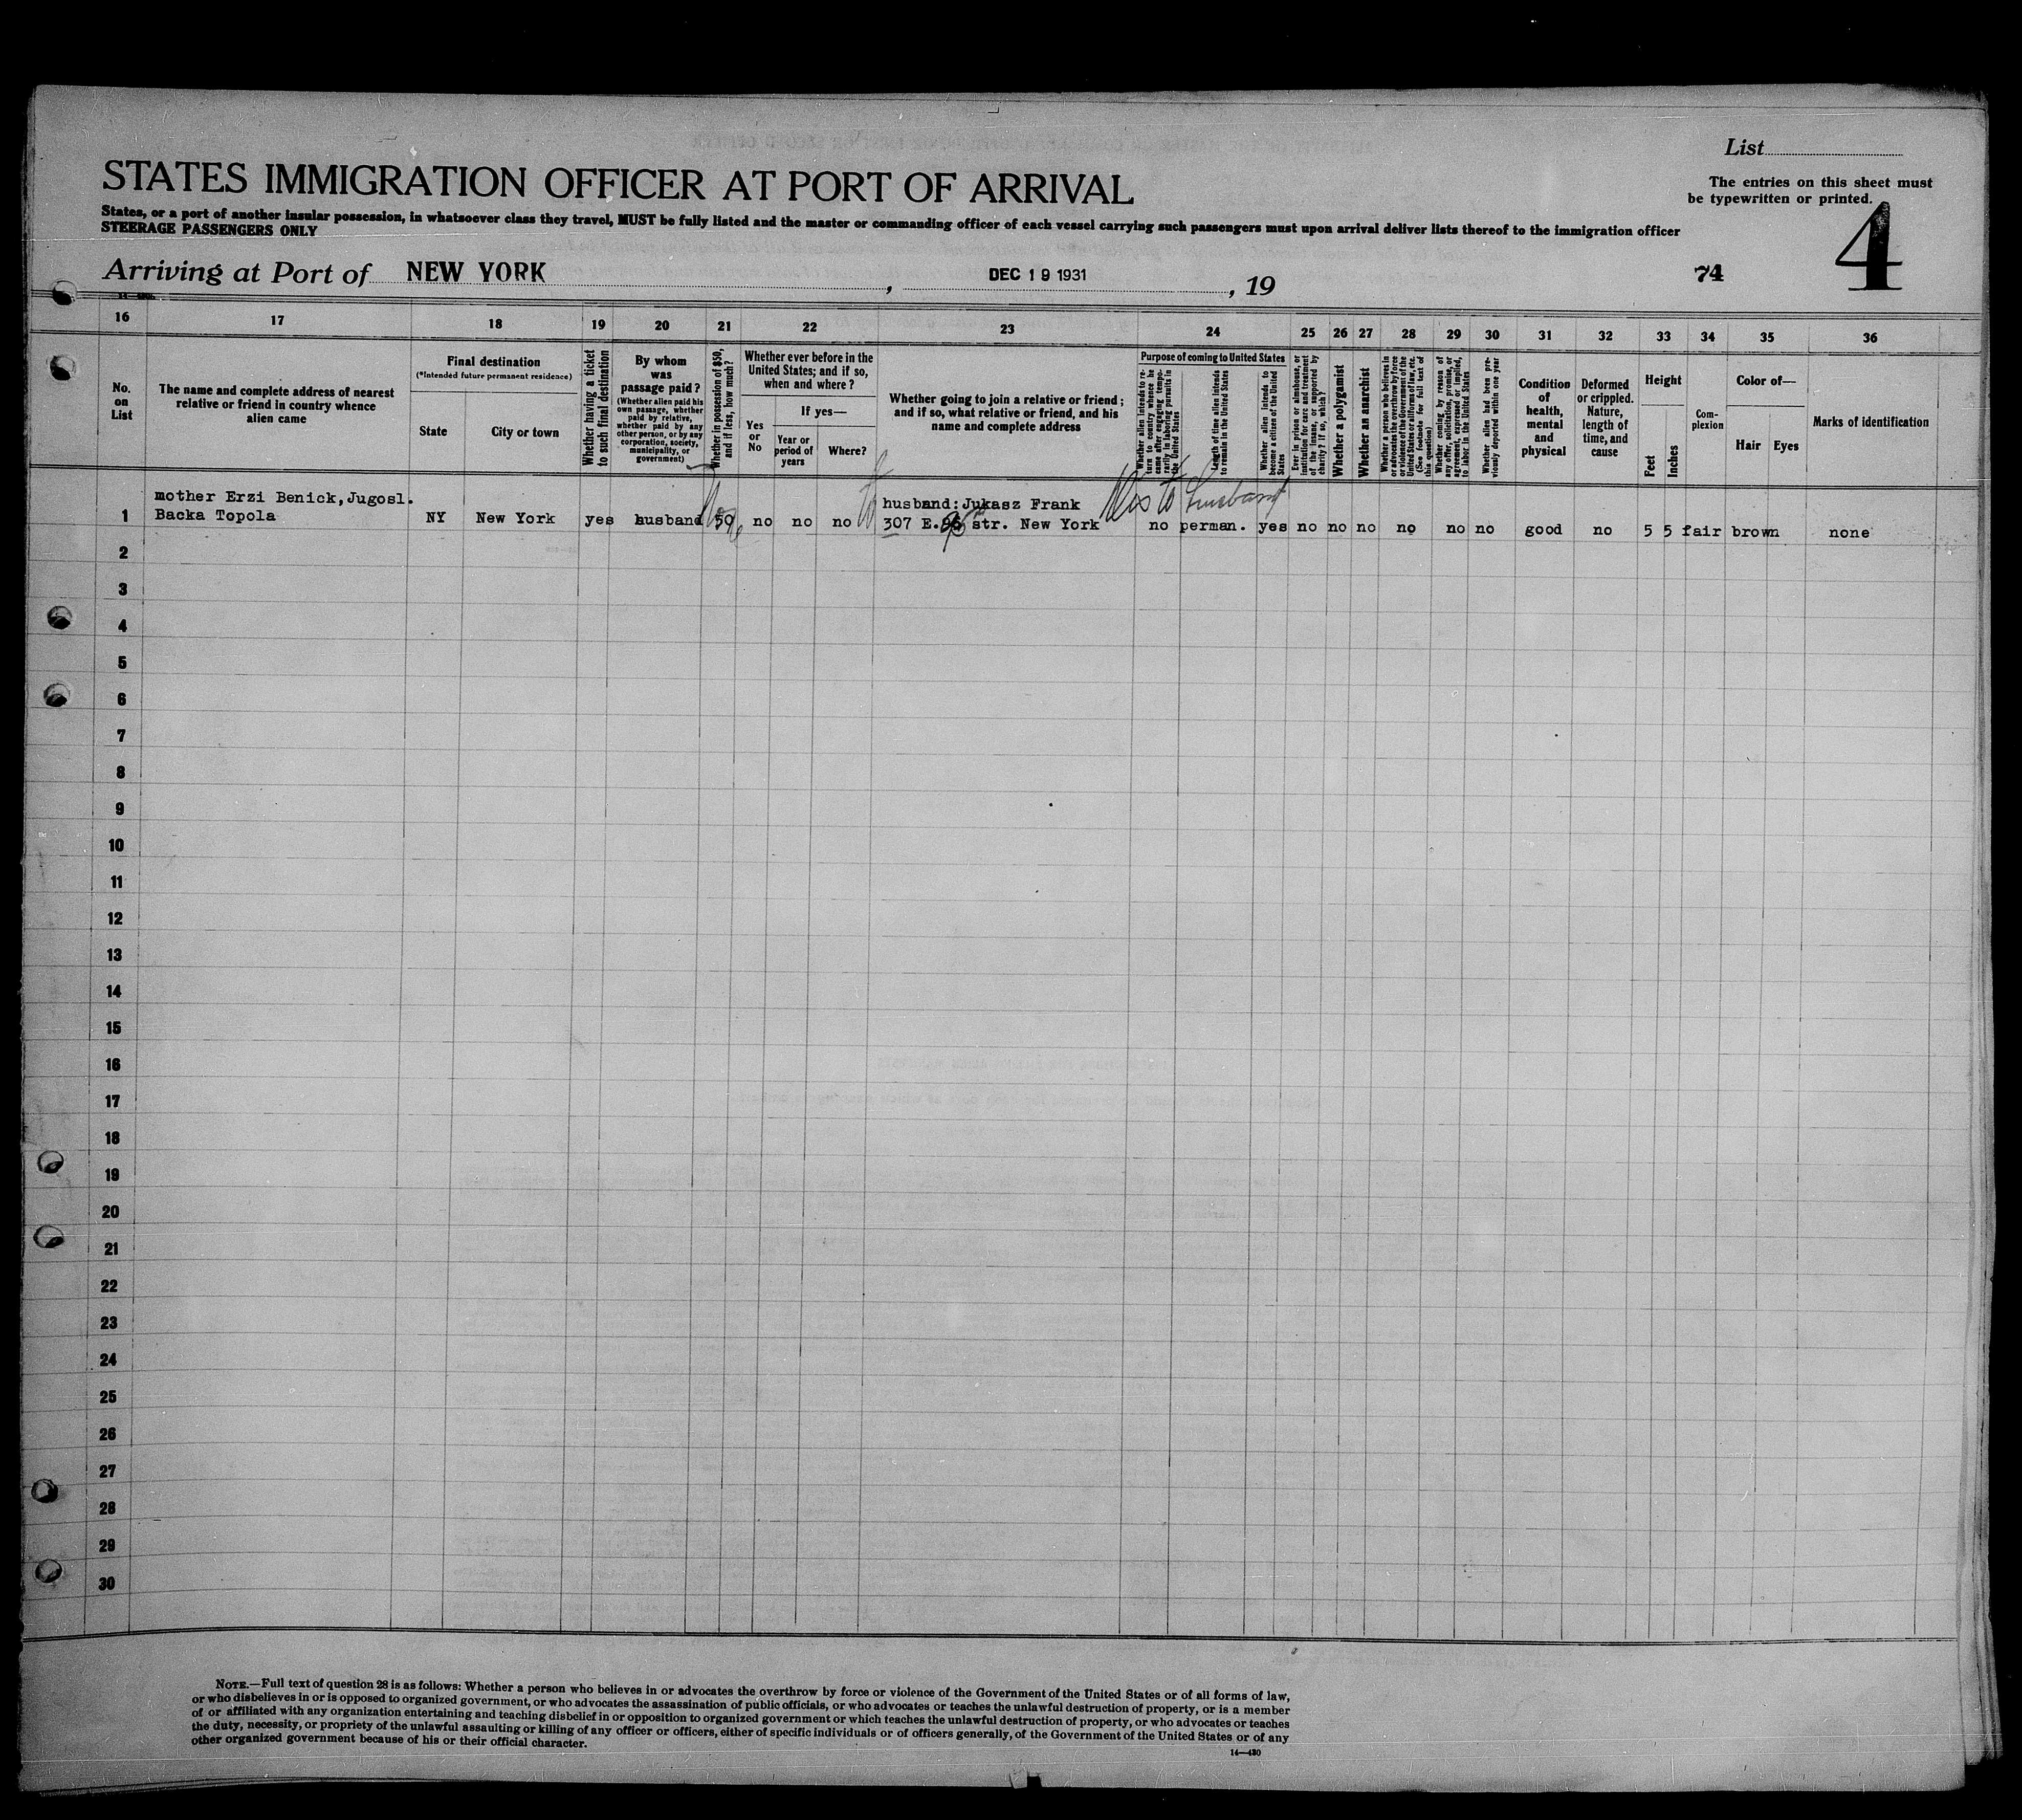 List
STATES IMMIGRATION OFFICER AT PORT OF ARRIVAL
The entries on this sheet must
be typewritten or printed.
States, or a port of another insular possession, in whatsoever class they travel, MUST be fully listed and the master or commanding officer of each vessel carrying such passengers must upon arrival deliver lists thereof to the immigration officer
STEERAGE PASSENGERS ONLY
4
Arriving at Port of NEW YORK, DEC 19 1931, 19
74
16 17 18 19 20 21 22 23 24 25 26 27 28 29 30 31 32 33 34 35 36
No.
on
List
The name and complete address of nearest
relative or friend in country whence
alien came
Final destination
(*Intended future permanent residence)
State
City or town
Whether having a ticket
to such final destination
By whom
was
passage paid?
(Whether alien paid his
own passage, whether
paid by relative,
whether paid by any
other person, or by any
corporation, society,
municipality, or
government)
Whether in possession of $50,
and if less, how much?
Whether ever before in the
United States; and if so,
when and where?
Yes
or
No
If yes—
Year or
period of
years
Where?
Whether going to join a relative or friend;
and if so, what relative or friend, and his
name and complete address
Purpose of coming to United States
Whether alien intends to re-
turn to country whence he
came after engaging tempo-
rarily in laboring pursuits in
the United States
Length of time alien intends
to remain in the United States
Whether alien intends to
become a citizen of the United
States
Ever in prison or almshouse, or
institution for care and treatment
of the insane, or supported by
charity? If so, which?
Whether a polygamist
Whether an anarchist
Whether a person who believes in
or advocates the overthrow by force
or violence of the Government of the
United States or all forms of law, etc.
(See footnote for full text of
this question)
Whether coming by reason of
any offer, solicitation, promise, or
agreement, expressed or implied,
to labor in the United States
Whether alien had been pre-
viously deported within one year
Condition
of
health,
mental
and
physical
Deformed
or crippled.
Nature,
length of
time, and
cause
Height
Feet
Inches
Com-
plexion
Color of—
Hair Eyes
Marks of identification
to husband
mother Erzi Benick, Jugosl.
husband: Jukasz Frank
1 Backa Topola NY New York yes husband 50 no no no 307 E. 95 str. New York no perman. yes no no no no no no good no 5 5 fair brown none
2
3
4
5
6
7
8
9
10
11
12
13
14
15
16
17
18
19
20
21
22
23
24
25
26
27
28
29
30
NOTE.—Full text of question 28 is as follows: Whether a person who believes in or advocates the overthrow by force or violence of the Government of the United States or of all forms of law,
or who disbelieves in or is opposed to organized government, or who advocates the assassination of public officials, or who advocates or teaches the unlawful destruction of property, or is a member
of or affiliated with any organization entertaining and teaching disbelief in or opposition to organized government or which teaches the unlawful destruction of property, or who advocates or teaches
the duty, necessity, or propriety of the unlawful assaulting or killing of any officer or officers, either of specific individuals or of officers generally, of the Government of the United States or of any
other organized government because of his or their official character.
14—430